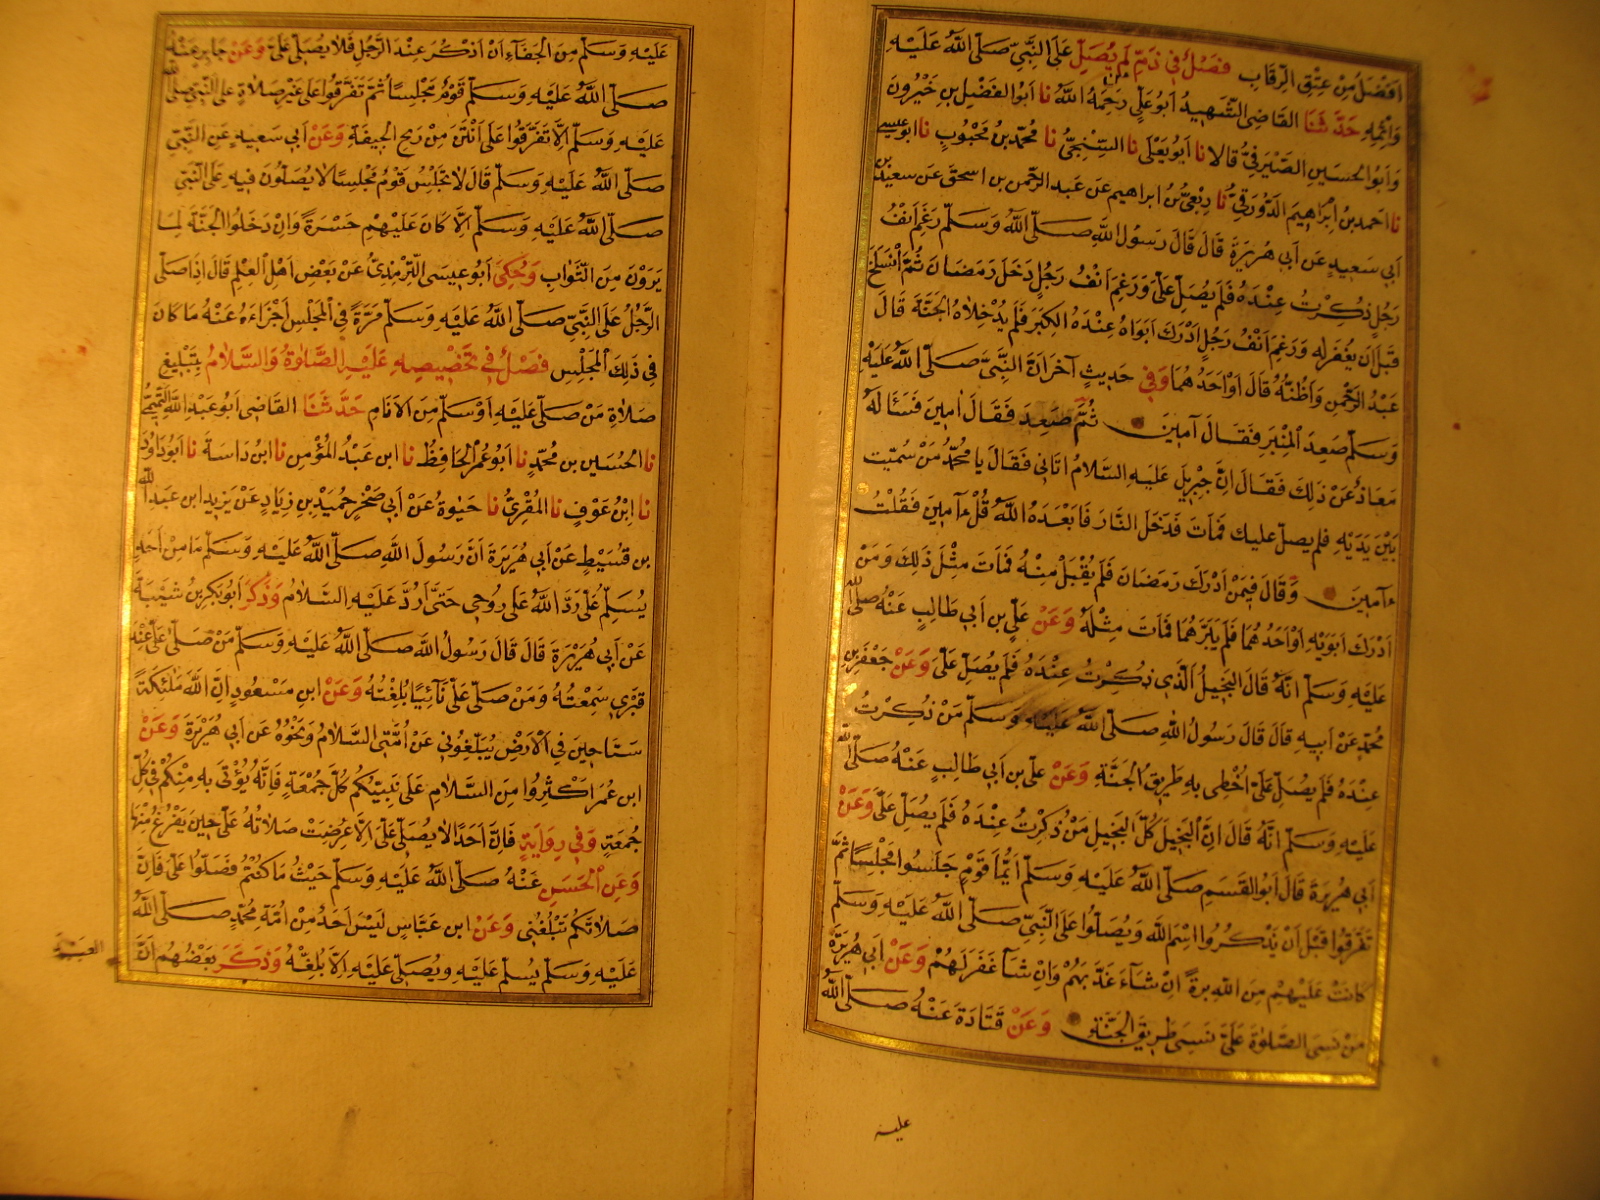 افضل من عتق الرقاب فصل في ذم من لم يصل على النبي صلى الله عليه
واثمه حدثنا القاضي الشهيد ابو علي رحمه الله نا ابو الفضل بن خيرون
وابو الحسين الصيرفي قالا نا ابو يعلى نا السنجي نا محمد بن محبوب نا ابو عيسى
نا احمد بن ابراهيم الدورقي نا ربعي بن ابراهيم عن عبد الرحمن بن اسحق عن سعيد بن
ابي سعيد عن ابي هريرة قال قال رسول الله صلى الله عليه وسلم رغم انف
رجل ذكرت عنده فلم يصل علي ورغم انف رجل دخل رمضان ثم انسلخ
قبل ان يغفر له ورغم انف رجل ادرك ابواه عنده الكبر فلم يدخلاه الجنة قال
عبد الرحمن واظنه قال او احدهما وفي حديث آخر ان النبي صلى الله عليه
وسلم صعد المنبر فقال آمين ثم صعد فقال امين فسأله
معاذ عن ذلك فقال ان جبريل عليه السلام اتاني فقال يا محمد من سميت
بين يديه فلم يصل عليك فمات فدخل النار فابعده الله قل ءامين فقلت
ءامين وقال فيمن ادرك رمضان فلم يقبل منه فمات مثل ذلك ومن
ادرك ابويه او احدهما فلم يبرهما فمات مثله وعن علي بن ابي طالب عنه صلى الله
عليه وسلم انه قال البخيل الذي ذكرت عنده فلم يصل علي وعن جعفر بن
محمد عن ابيه قال قال رسول الله صلى الله عليه وسلم من ذكرت
عنده فلم يصل علي اخطئ به طريق الجنة وعن علي بن ابي طالب عنه صلى الله
عليه وسلم انه قال ان البخيل كل البخيل من ذكرت عنده فلم يصل علي وعن
ابي هريرة قال ابو القسم صلى الله عليه وسلم ايما قوم جلسوا مجلسا ثم
تفرقوا قبل ان يذكروا اسم الله ويصلوا على النبي صلى الله عليه وسلم
كانت عليهم من الله ترة ان شاء عذبهم وان شا غفر لهم وعن ابي هريرة
من نسي الصلوة علي نسي طريق الجنة وعن قتادة عنه صلى الله
عليه
عليه وسلم من الجفاء ان اذكر عند الرجل فلا يصلي علي وعن جابر عنه
صلى الله عليه وسلم قوم مجلسا ثم تفرقوا على غير صلاة على النبي صلى الله
عليه وسلم الا تفرقوا على انتن من ريح الجيفة وعن ابي سعيد عن النبي
صلى الله عليه وسلم قال لا يجلس قوم مجلسا لا يصلون فيه على النبي
صلى الله عليه وسلم الا كان عليهم حسرة وان دخلوا الجنة لما
يرون من الثواب وحكى ابو عيسى الترمذي عن بعض اهل العلم قال اذا صلى
الرجل على النبي صلى الله عليه وسلم مرة في المجلس اجزاءه عنه ما كان
في ذلك المجلس فصل في تخصيصه عليه الصلوة والسلام بتبليغ
صلاة من صلى عليه او سلم من الانام حدثنا القاضي ابو عبد الله التميمي
نا الحسين بن محمد نا ابو عمر الحافظ نا ابن عبد المؤمن نا ابن داسة نا ابو داود
نا ابن عوف نا المقرئ نا حيوة عن ابي صخر حميد بن زياد عن يزيد ابن عبد الله
بن قسيط عن ابي هريرة ان رسول الله صلى الله عليه وسلم ما من احد
يسلم علي رد الله على روحي حتى ارد عليه السلام وذكر ابو بكر بن شيبة
عن ابي هريرة قال قال رسول الله صلى الله عليه وسلم من صلى علي عند
قبري سمعته ومن صلى علي نآئيا بلغته وعن ابن مسعود ان الله ملئكة
سياحين في الارض يبلغوني عن امتي السلام ونحوه عن ابي هريرة وعن
ابن عمر اكثروا من السلام على نبيكم كل جمعة فانه يؤتى به منكم في كل
جمعة وفي رواية فان احدا لا يصلي علي الا عرضت صلاته علي حين يفرغ منها
وعن الحسن عنه صلى الله عليه وسلم حيث ما كنتم فصلوا علي فان
صلاتكم تبلغني وعن ابن عباس ليس احد من امة محمد صلى الله
عليه وسلم يسلم عليه ويصلي عليه الا بلغه وذكر بعضهم ان
العبد